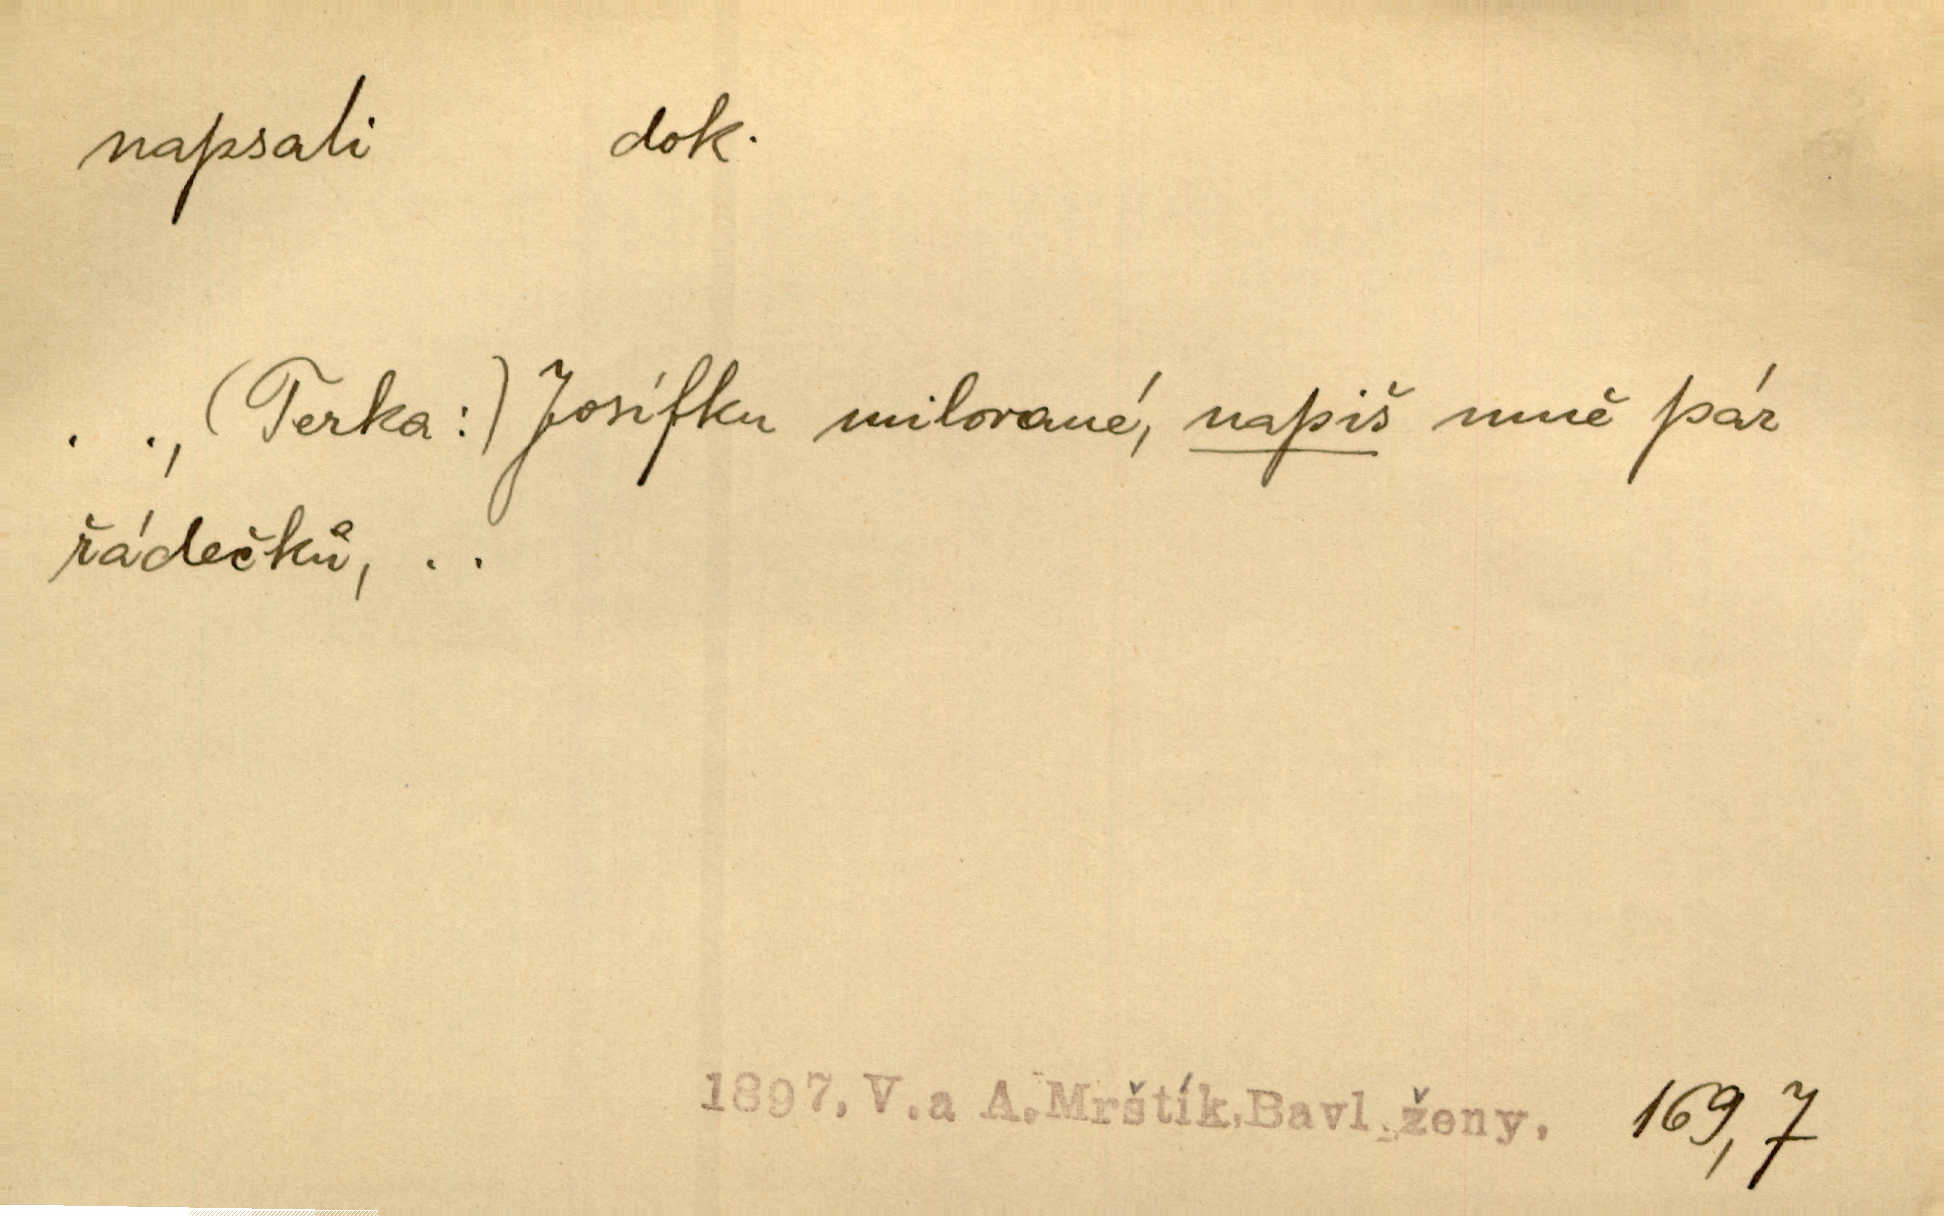 napsali dok.
. ., (Terka:) Josífku milované, napiš mně pár
řádečků, . .
1897. V.a A.Mrštík.Bavl.ženy. 169,7